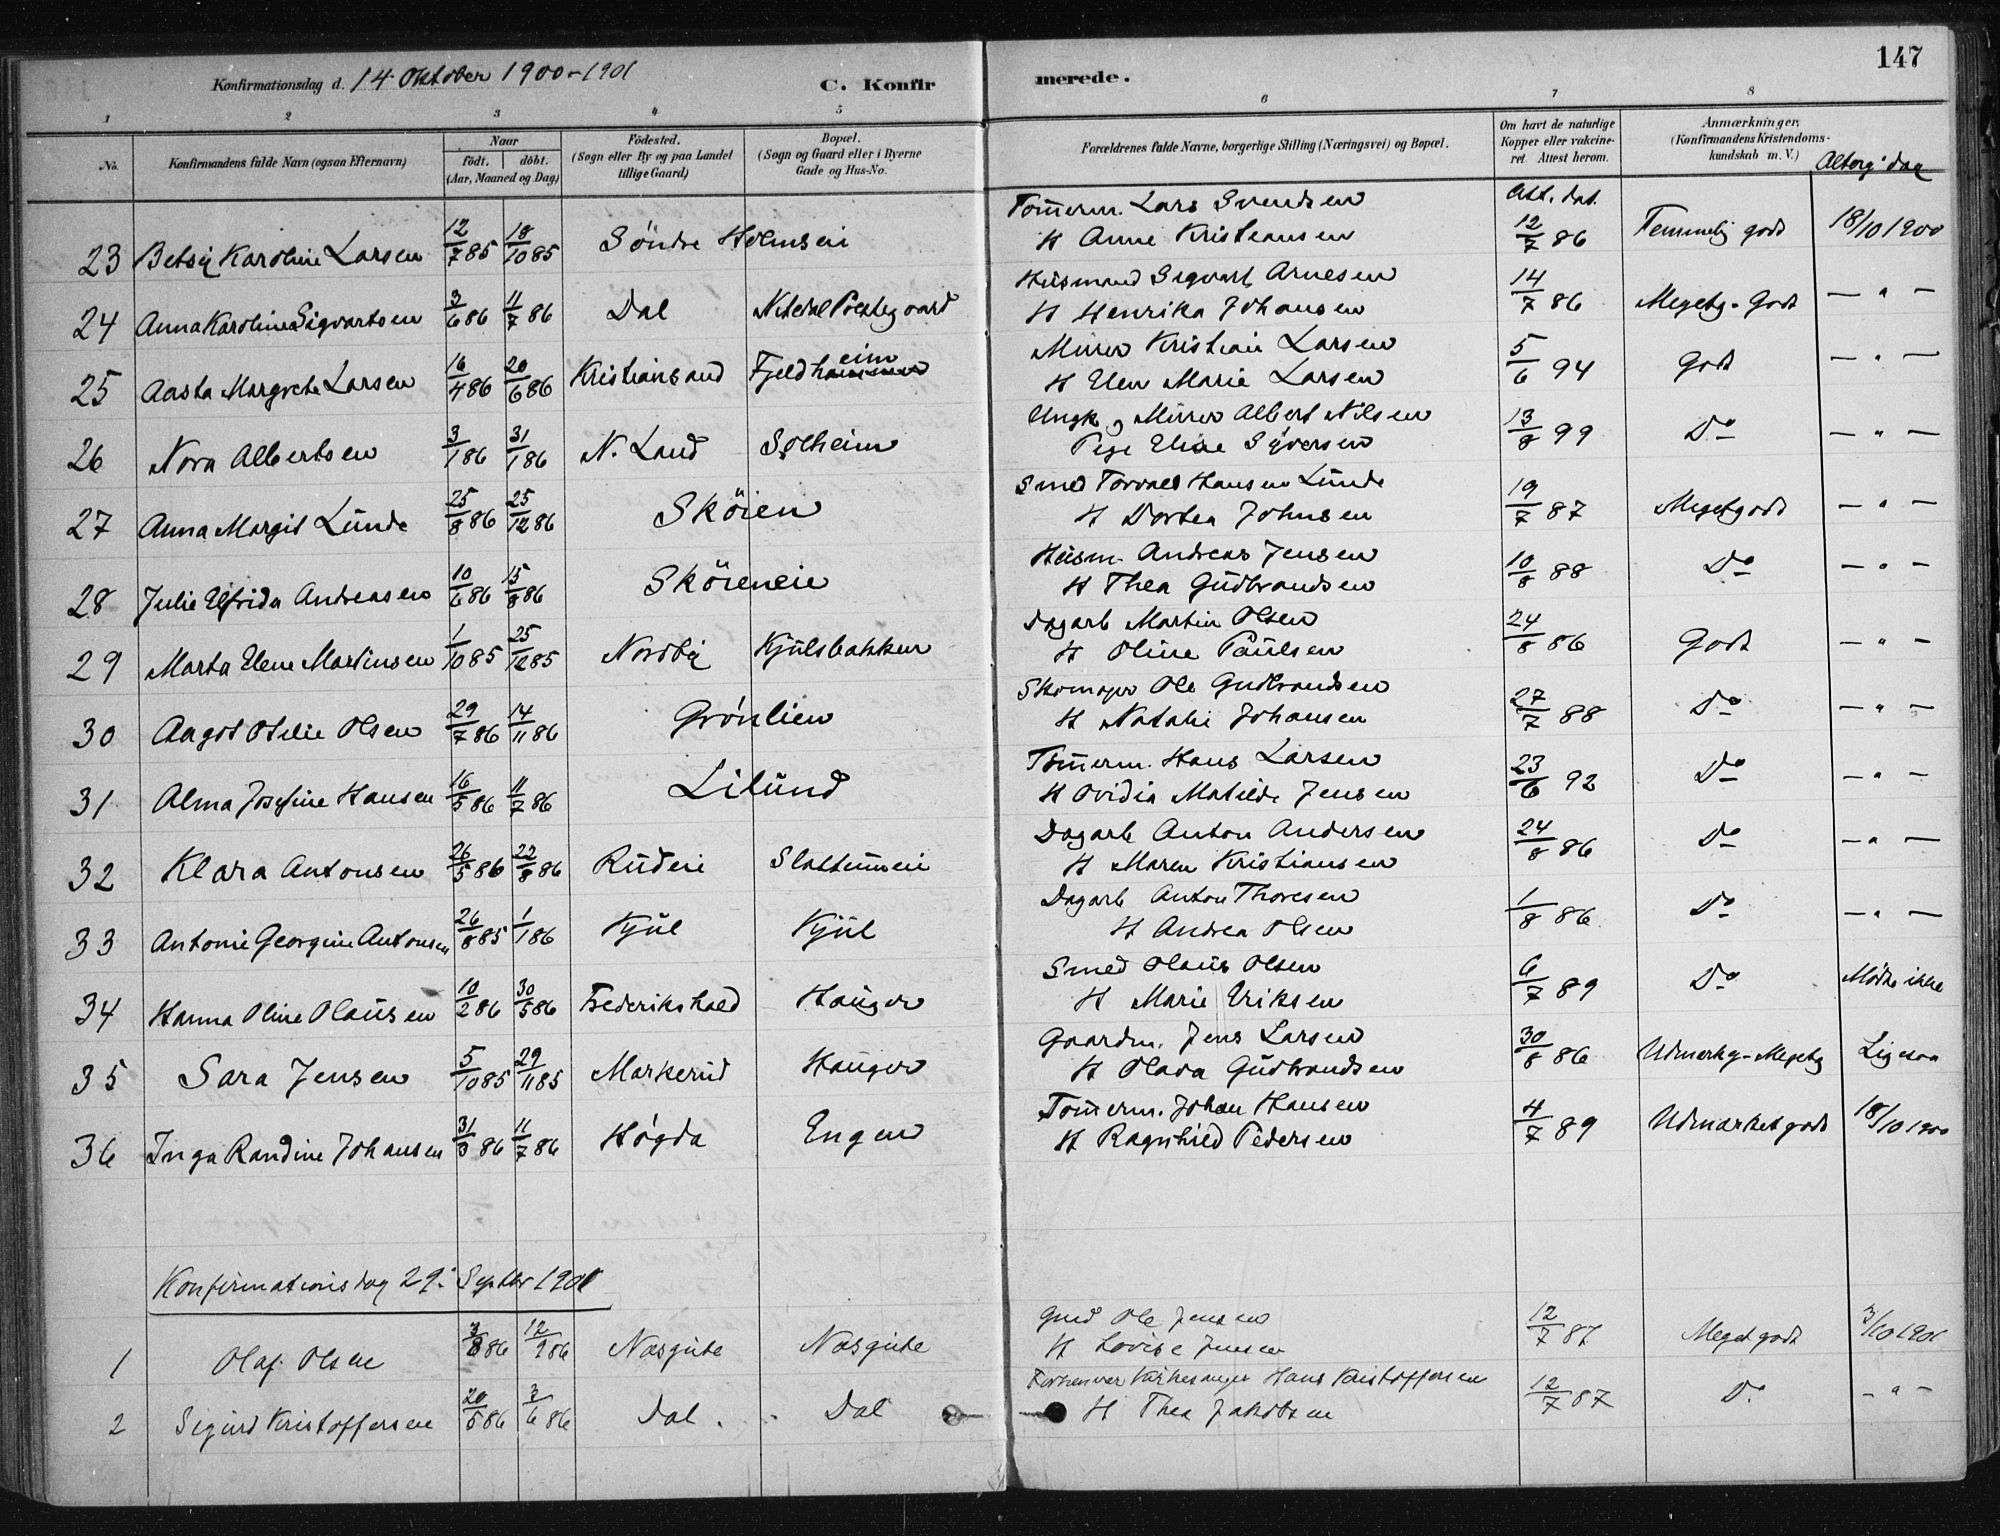 147
Konfirmationsdag d. 14 Oktober 1900-1901
C. Konfirmerede.
1 2 3 4 5 6 7 8
No. Konfirmandens fulde Navn (ogsaa Efternavn) Naar født. døbt. (Aar, Maaned og Dag) Fødested. (Sogn eller By og paa Landet tillige Gaard) Bopæl. (Sogn og Gaard eller i Byerne Gade og Hus-No. Forældrenes fulde Navne, borgerlige Stilling (Næringsvei) og Bopæl. Om havt de naturlige Kopper eller vakcineret Attest herom. Anmærkninger. (Konfirmandens Kristendomskundskab m. V.) Altergs dag
Att. dat.
Tømmerm. Lars Svendsen
23 Betsy Karoline Larsen 12/7 85 18/10 85 Söndre Holmseie H Anne Kristiansen 12/7 86 Temmelig godt 18/10 1900
Husmand Sigvart Arnesen
24 Anna Karoline Sigvartsen 3/6 86 11/7 86 Dal Nitedal Prestegaard H Henrika Johansen 14/7 86 Megetg-Godt — " —
Murer Kristian Larsen
25 Aasta Margrete Larsen 16/4 86 20/6 86 Kristiansand Fjeldheim H Elen Marie Larsen 5/6 94 Godt — " —
Ungk og Murer Albert Nilsen
26 Nora Albertsen 3/1 86 31/1 86 N. Land Solheim Pige Eline Syversen 13/8 99 Do — " —
Smed Torvald Hansen Lunde
27 Anna Margit Lunde 25/8 86 25/12 86 Sköien H Dortea Johnsen 19/7 87 Megetgodt — " —
Husm. Andreas Jensen
28 Julie Elfrida Andreasen 10/6 86 15/8 86 Sköieneie H Thea Gudbrandsen 10/8 88 Do — " —
Dagarb Martin Olsen
29 Marta Elene Martinsen 1/10 85 25/12 85 Nordby Kjulsbakken H Oline Paulsen 24/8 86 Godt — " —
Skomager Ole Gudbrandsen
30 Aagot Otilie Olsen 29/7 86 14/11 86 Grönlien H Natalie Johansen 27/7 88 Do — " —
Tømmerm. Hans Larsen
31 Alma Josefine Hansen 16/5 86 11/7 86 Lilund H Ovidia Matilde Jensen 23/6 92 Do — " —
Dagarb Anton Andersen
32 Klara Antonsen 26/5 86 22/8 86 Rudeie Slattumeie H Maren Kristiansen 24/8 86 Do — " —
Dagarb Anton Thoresen
33 Antonie Georgine Antonsen 26/8 85 1/1 86 Kjul Kjul H Andrea Olsen 1/8 86 Do — " —
Smed Olaus Olsen
34 Hanna Oline Olausen 10/2 86 30/5 86 Frederikshald Hauger H Marie Eriksen 6/7 89 Do Mødte ikke
Gaardm. Jens Larsen
35 Sara Jensen 5/10 85 29/11 85 Markerud Hauger H Olava Gudbrandsen 30/8 86 Udmerkg-Megetg Ligesaa
Tømmerm. Johan Hansen
36 Inga Randine Johansen 31/3 86 11/7 86 Høgda Engen H Ragnhild Pedersen 4/7 89 Udmærketgodt 18/10 1900
Konfirmationsdag 29. Septbr 1901
Gmd Ole Jensen
1 Olaf Olsen 86 12/9 86 Næsgute Næsgute H Lovise Jensen 12/7 87 Meget godt 3/10 1901
Forhenver Kirkesanger Hans Kristoffersen
2 Sigurd Kristoffersen 20/5 86 3/6 86 Dal. Dal H Thea Jakobsen 12/7 87 Do — " —